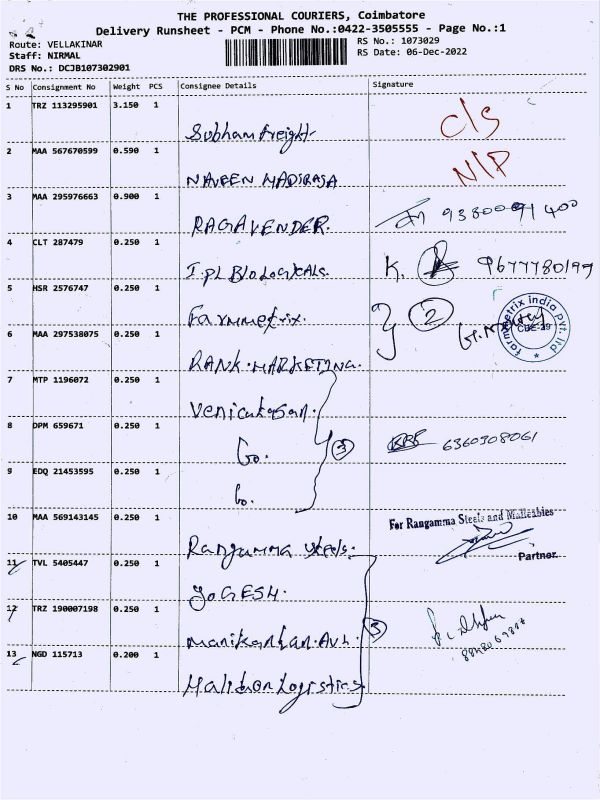 THE PROFESSIONAL COURIERS, Coimbatore
Delivery Runsheet - PCM - Phone No.:0422-3505555 - Page No.:1
Route: VELLAKINAR
RS No.: 1073029
Staff: NIRMAL
RS Date: 06-Dec-2022
DRS No.: DCJB107302901
S No Consignment No Weight PCS Consignee Details Signature
1 TRZ 113295901 3.150 1
Subham freight C/S
2 MAA 567670599 0.590 1
NAVEEN MADIRAJA N/P
3 MAA 295976663 0.900 1
RAGAVENDER. 9380091400
4 CLT 287479 0.250 1
I.PL BIOLOGICALS K. 9677780199
5 HSR 2576747 0.250 1
Farmmetrix. 2
farmmetrix india pvt. ltd
CBE-29
6 MAA 297538075 0.250 1
RANK MARKETING.
7 MTP 1196072 0.250 1
8 DPM 659671 0.250 1
Go. 3 6360308061
9 EDQ 21453595 0.250 1
Go.
10 MAA 569143145 0.250 1
For Rangamma Steels and Malleables
Rangamma Steels.
Partner.
11 TVL 5405447 0.250 1
YOGESH.
12 TRZ 190007198 0.250 1
Manikantan. 3
13 NGD 115713 0.200 1
Logistics